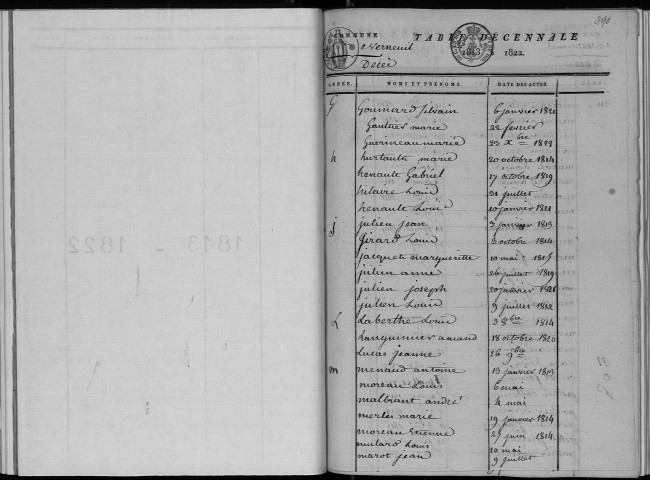 290
COMMUNE
TABLE DÉCENNALE
Verneuil
1813 à 1822.
Décès
ANNÉE.
NOMS ET PRÉNOMS.
DATE DES ACTES.
G Goumard Silvain 6 janvier 1821
Gaultier marie 22 février
Guerineau marie 23 Xbre 1822
h hurtault marie 20 octobre 1814
henault Gabriel 17 octobre 1819
hilaire Louis 31 juillet
henault Louis 10 janvier 1821
J julien jean 7 janvier 1813
Girard Louis 6 octobre 1814
jacquet margueritte 10 mai 1815
julien anne 26 juillet 1819
julien joseph 20 janvier 1821
julien Louis 9 juillet 1822
L Laberthe Louis 3 8bre 1814
Languinier amand 18 octobre 1820
Lucas jeanne 26 9bre
m menaud antoine 13 janvier 1813
moreau Louis 6 mai
malbrant andré 4 mai
merles marie 19 janvier 1814
moreau Etienne 25 juin 1814
mulard Louis 10 mai
marot jean 9 juillet
1813 - 1822